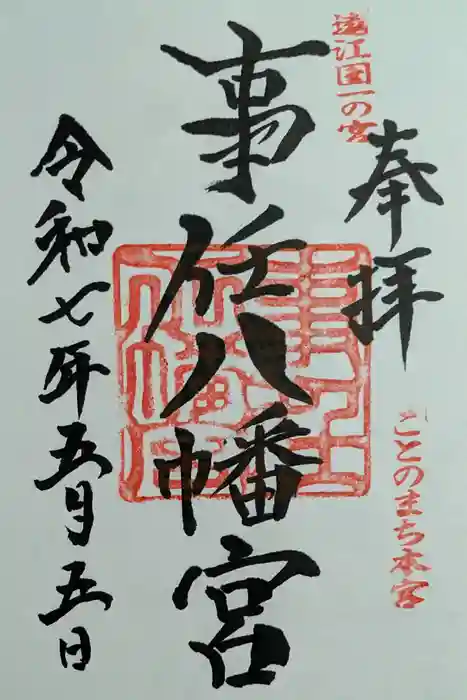 遠江國一の宮
奉拝
ことのまち本宮
事任八幡宮
令和七年五月五日